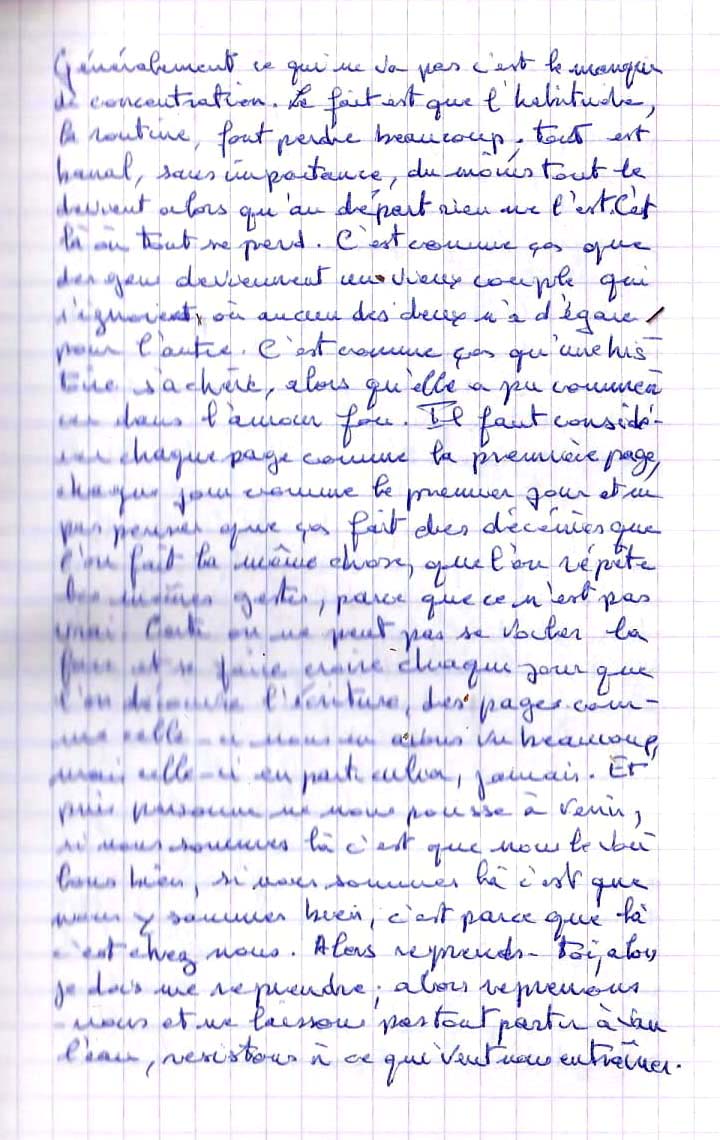 Généralement ce qui ne va pas c'est le manque
de concentration. Le fait est que l'habitude,
la routine, font perdre beaucoup, tout est
banal, sans importance, du moins tout le
devient alors qu'au départ rien ne l'est. C'est
là où tout se perd. C'est comme ça que
des gens deviennent un vieux couple qui
s'ignorent, où aucun des deux n'a d'égard
pour l'autre. C'est comme ça qu'une his-
toire s'achève, alors qu'elle a pu commen
cer dans l'amour fou. Il faut considé-
rer chaque page comme la première page,
chaque jour comme le premier jour et ne
pas penser que ça fait des décénies que
l'on fait la même chose, que l'on répète
les mêmes gestes, parce que ce n'est pas
vrai. Certe on ne peut pas se voiler la
face et se faire croire chaque jour que
l'on découvre l'écriture, des pages com-
me celle-ci nous en avons vu beaucoup,
mais celle-ci en particulier, jamais. Et
puis personne ne nous pousse à venir,
si nous sommes là c'est que nous le vou
lons bien, si nous sommes là c'est que
nous y sommes bien, c'est parce que là
c'est chez nous. Alors reprends-toi, alors
je dois me reprendre, alors reprenons
-nous et ne laissons pas tout partir à vau
l'eau, resistons à ce qui veut nous entraîner.